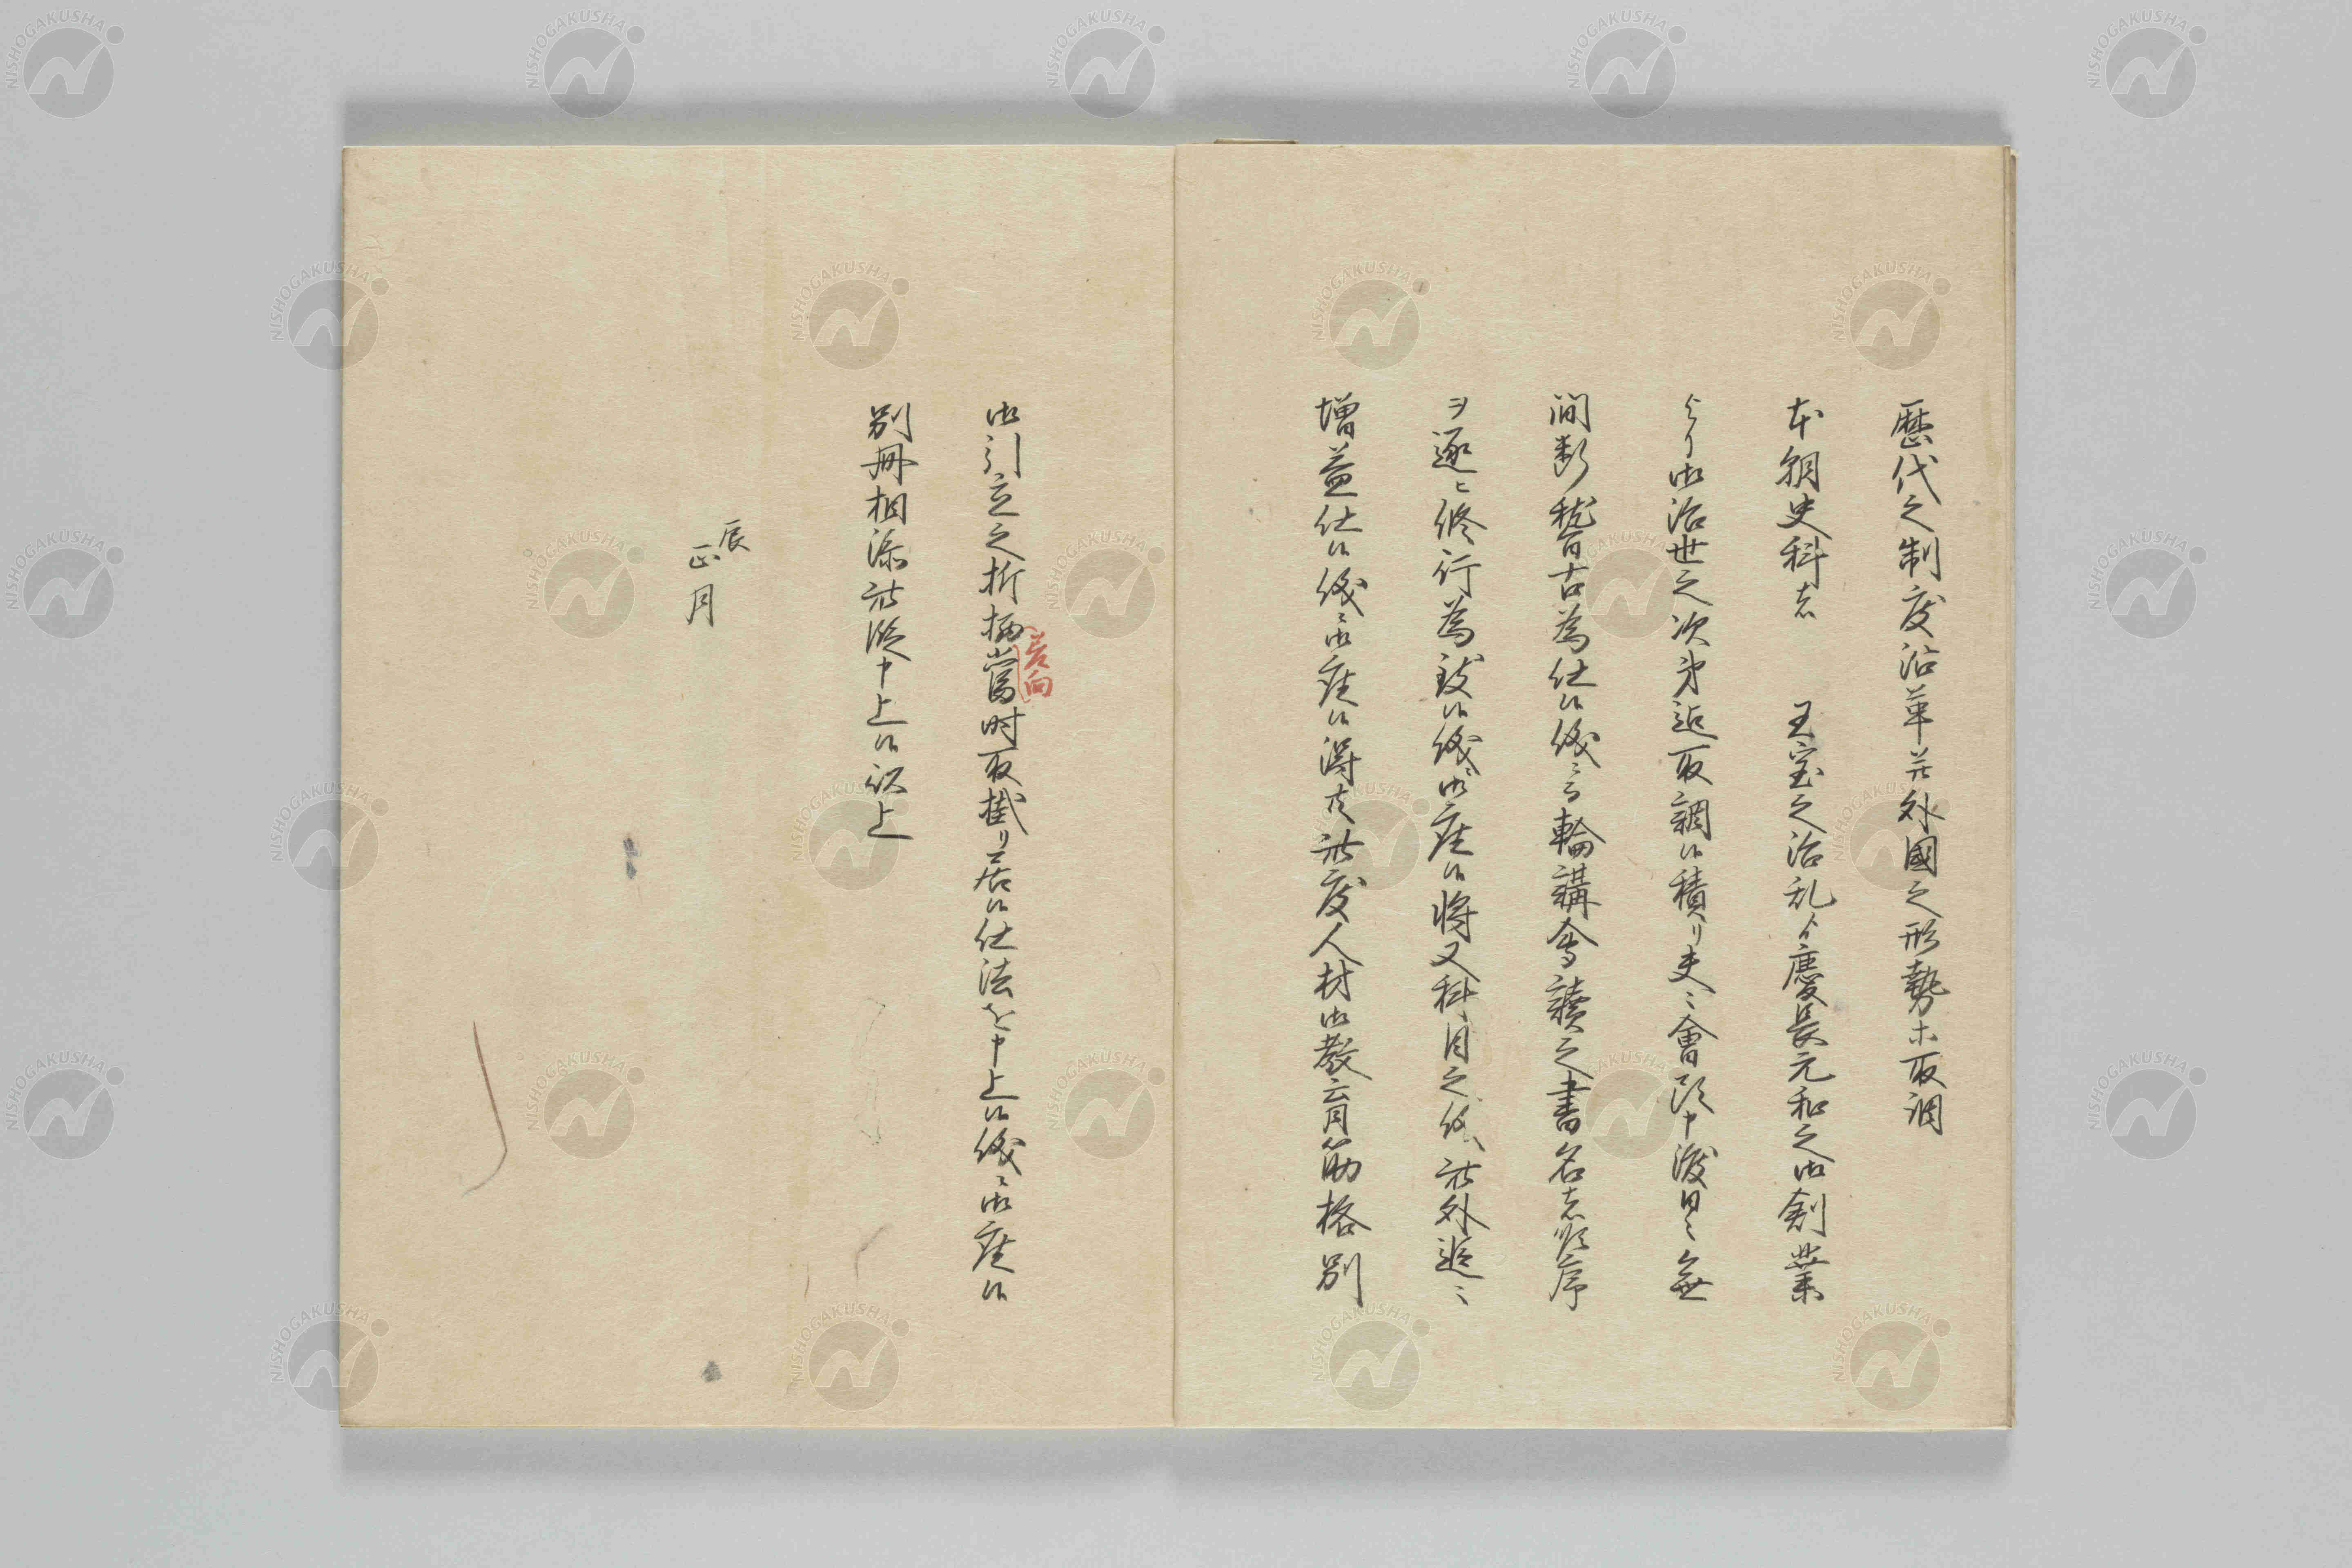 歴代之制度沿革并外國之形勢ホ取調
本朝史科者　王室之治乱ゟ慶長元和之御創業
より御治世之次第迄取調候積リ夫〻會頭申渡日〻無
間断稽古為仕候儀ニ而輪講會讀之書名者順序
ヲ逐ヒ修行為致候儀ニ御座候将又科目之儀此外追〻
増益仕候儀ニ御座候得共此度人材御教育筋格別
御引立之折柄當時取掛リ居候仕法を申上候儀ニ御座候
若向
別冊相添此段申上候以上
辰
正月
NISHOGAKUSHA